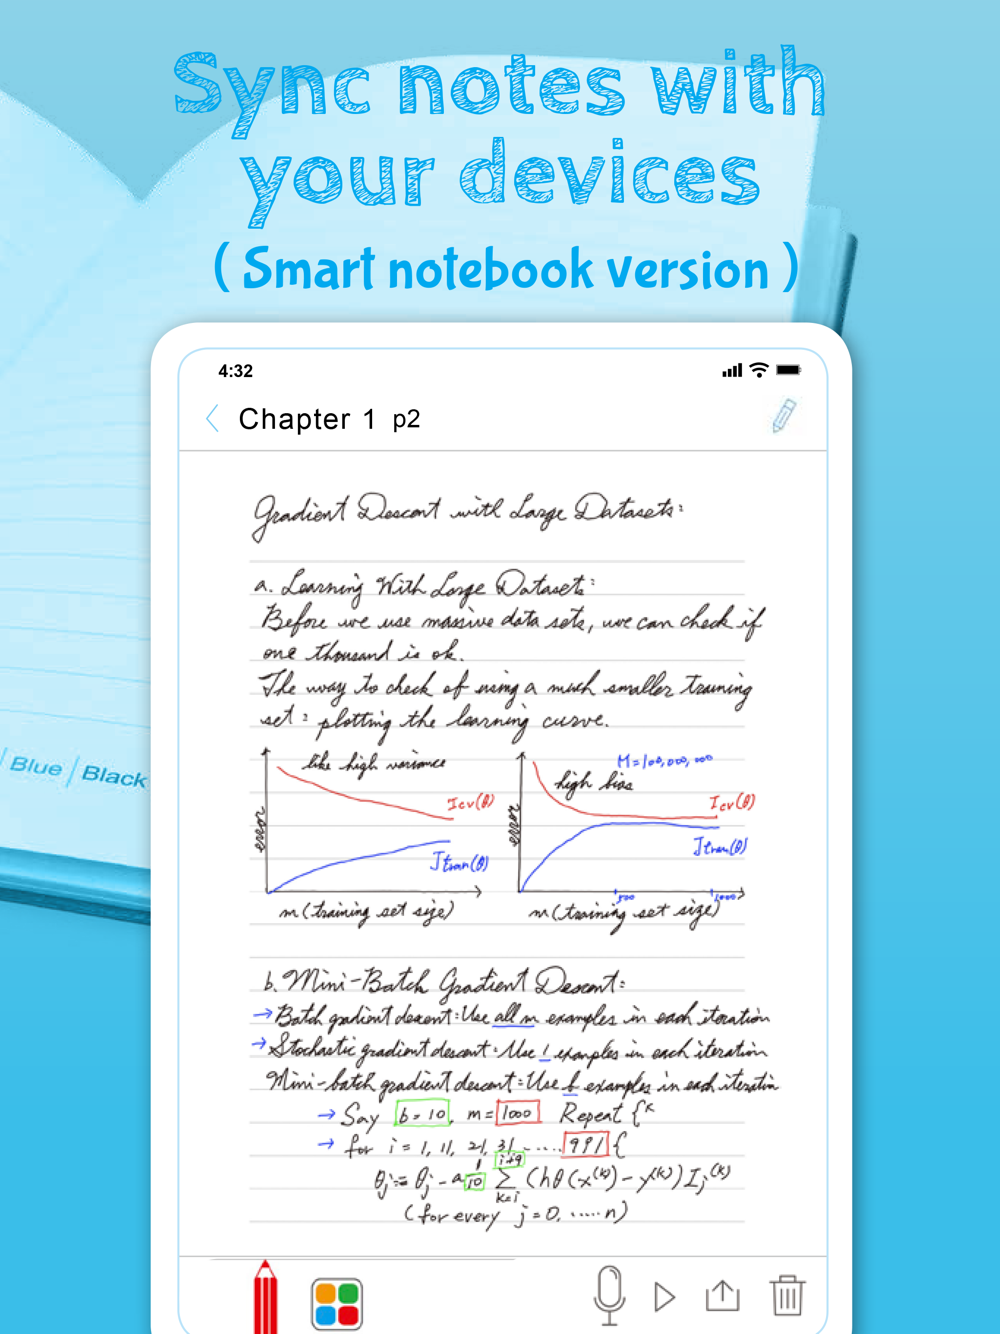 Sync notes with
your devices
( Smart notebook version )
4:32
Chapter 1 p2
Blue | Black
Gradient Descent with Large Datasets:
a. Learning With Large Datasets:
Before we use massive data sets, we can check if
one thousand is ok.
The way to check of using a much smaller training
set: plotting the learning curve.
like high variance
error
Jcv(θ)
Jtran(θ)
m (training set size)
M=100,000,000
high bias
error
Jcv(θ)
Jtran(θ)
500
1000
m (training set size)
b. Mini-Batch Gradient Descent:
→ Batch gradient descent: Use all m examples in each iteration
→ Stochastic gradient descent: Use 1 examples in each iteration
Mini-batch gradient descent: Use b examples in each iteration
→ Say b=10, m=1000 Repeat {
→ for i = 1, 11, 21, 31, ..... 991 {
θj := θj - a 1/10 Σ k=i i+9 (hθ(x(k)) - y(k)) Ij(k)
(for every j=0, ..... n)